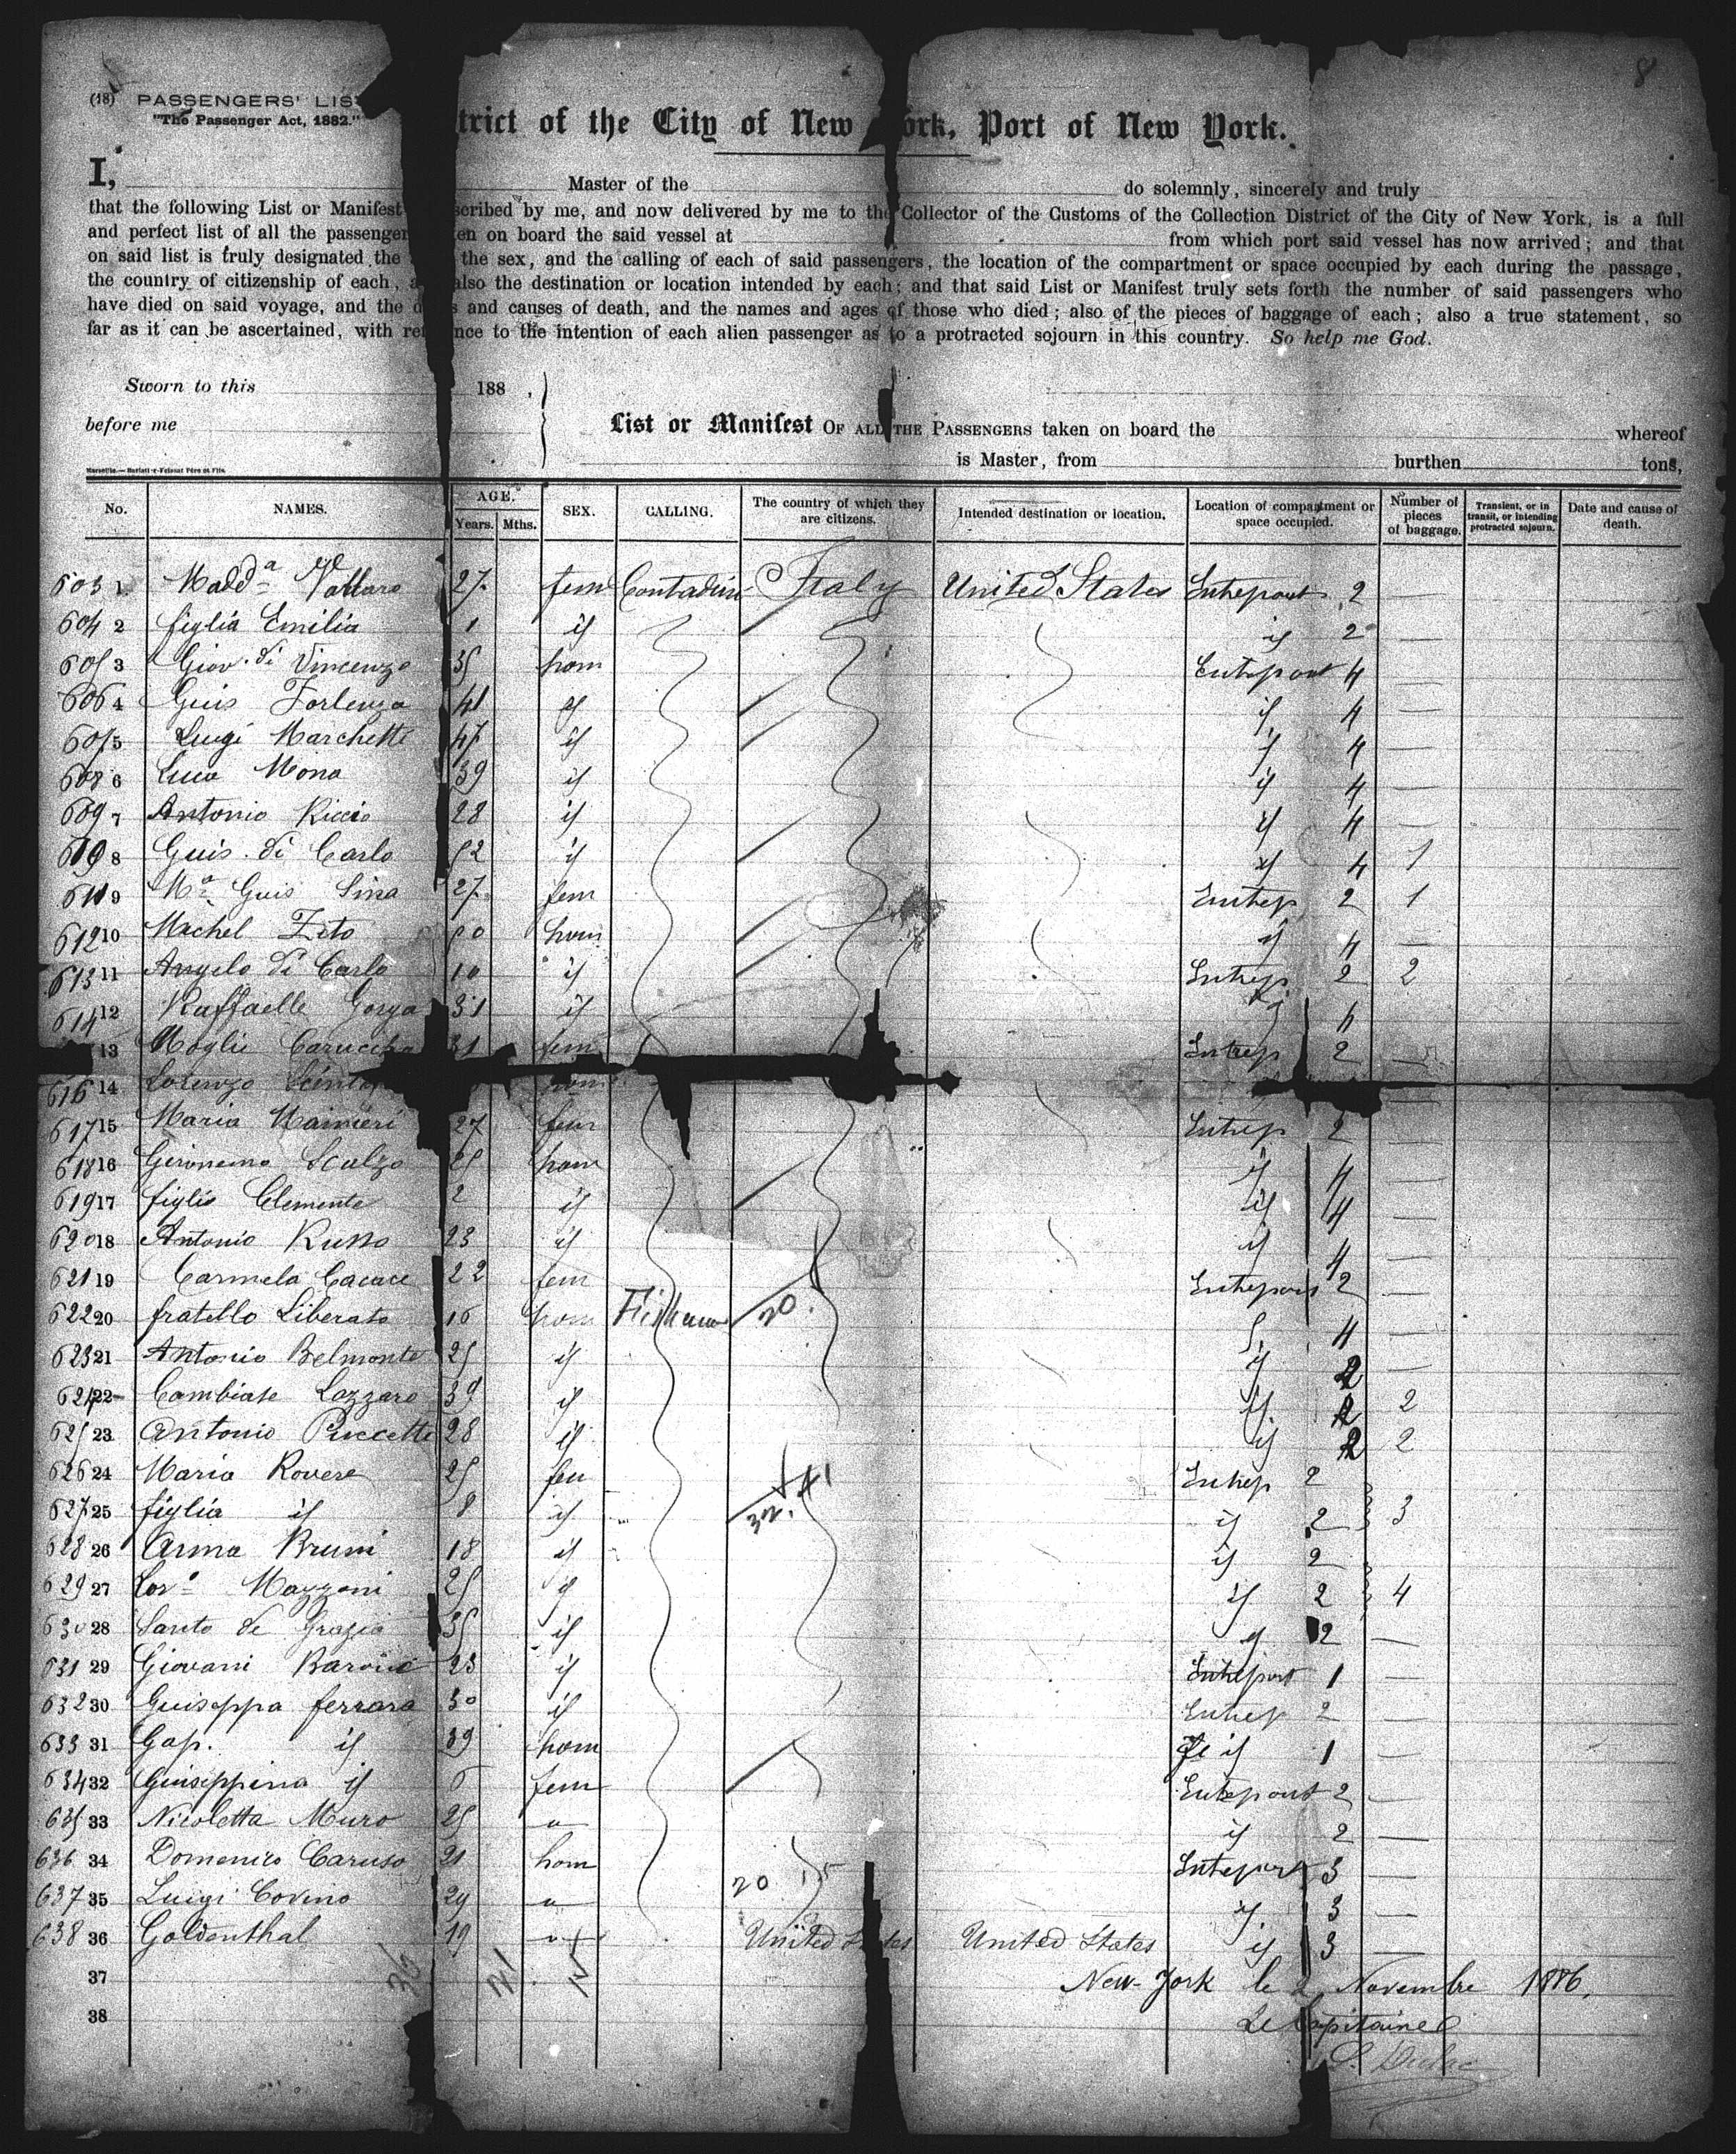 8
(18) PASSENGERS' LIS
"The Passenger Act, 1882."
trict of the City of New ork, Port of New York.
I, Master of the do solemnly, sincerely and truly
that the following List or Manifest scribed by me, and now delivered by me to the Collector of the Customs of the Collection District of the City of New York, is a full
and perfect list of all the passenger en on board the said vessel at from which port said vessel has now arrived; and that
on said list is truly designated the the sex, and the calling of each of said passengers, the location of the compartment or space occupied by each during the passage,
the country of citizenship of each, a also the destination or location intended by each; and that said List or Manifest truly sets forth the number of said passengers who
have died on said voyage, and the d s and causes of death, and the names and ages of those who died; also of the pieces of baggage of each; also a true statement, so
far as it can be ascertained, with ref nce to the intention of each alien passenger as to a protracted sojourn in this country. So help me God.
Sworn to this 188 ,
before me
List or Manifest OF ALL THE PASSENGERS taken on board the whereof
is Master, from burthen tons,
No. NAMES. AGE. Years. Mths. SEX. CALLING. The country of which they are citizens. Intended destination or location. Location of compartment or space occupied. Number of pieces of baggage. Transient, or in transit, or intending protracted sojourn. Date and cause of death.
603 1 Madda Vattaro 27 fem Contadini Italy United States Entrepont 2 —
604 2 figlia Emilia 1 if if 2 —
605 3 Giov. di Vincenzo 35 hom Entrepont 4 —
606 4 Guis Forlenza 41 if if 4 —
607 5 Luigi Marchette 47 if if 4 —
608 6 Luca Mona 39 if if 4 —
609 7 Antonio Riccio 28 if if 4 —
610 8 Guis. di Carlo 52 if if 4 1
611 9 Ma Guis Sina 27 fem Entrep 2 1
612 10 Machel Zito 50 hom if 4 —
613 11 Angelo di Carlo 10 if Entrep 2 2
614 12 Raffaelle Gorga 31 if 4
13 Moglie 31 fem Entrep 2 —
616 14 Lorenzo hom —
617 15 Maria Mainieri 27 fem Entrep 2 —
618 16 Geronemo Scalzo 25 hom if 4 —
619 17 figlio Clemente 2 if if 4 —
620 18 Antonio Russo 23 if if 4 —
621 19 Carmela Cacace 22 fem Entrepont 2 —
622 20 fratello Liberato 16 hom 20. 4 —
623 21 Antonio Belmonte 25 if if 2 —
624 22 Cambiase Lazzaro 39 if if 2 2
625 23 Antonio Puccetti 28 if if 2 2
626 24 Maria Rovere 25 fem Entrep 2
627 25 figlia if 8 if 32. if 2 3
628 26 Anna Bruni 18 if if 2
629 27 Mazzoni 25 if if 2 4
630 28 Santo de Grazia 35 if if 2 —
631 29 Giovani Barone 23 if Entrepont 1 —
632 30 Guiseppa ferrara 30 if Entrep 2 —
633 31 Gap. if 39 hom if 1 —
634 32 Guiseppina if 6 fem Entrepont 2 —
635 33 Nicoletta Muro 25 " if 2 —
636 34 Domenico Caruso 21 hom Entrepont 3 —
637 35 Luigi Covino 29 " 20 if 3 —
638 36 Goldenthal 19 " United States United States if 3 —
37 New-York le 2 Novembre 1886.
38 Le Capitaine
Marseille.— Barlatier-Feissat Père et Fils.